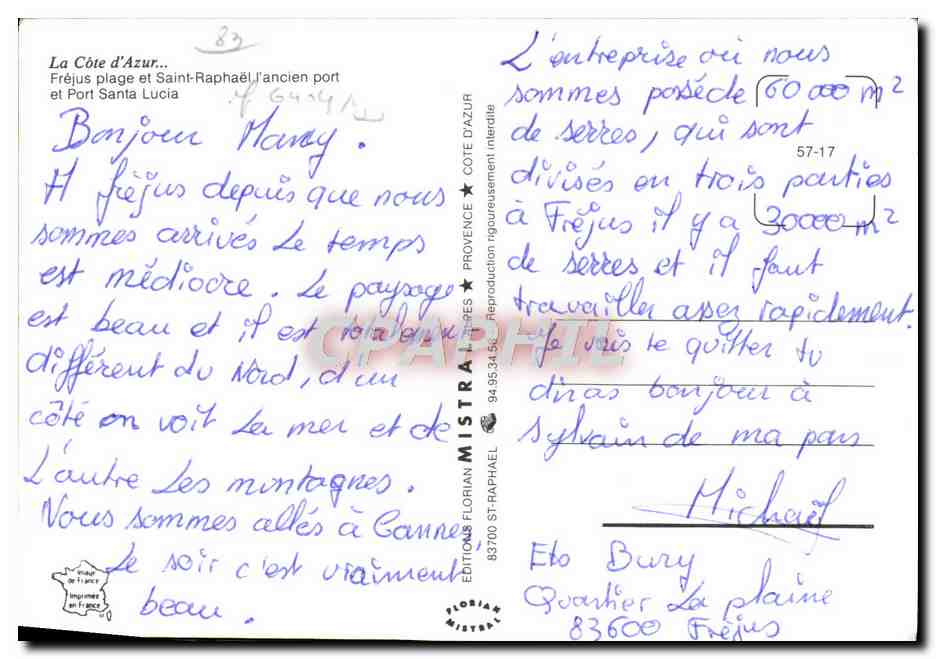 83
La Côte d'Azur...
Fréjus plage et Saint-Raphaël l'ancien port
et Port Santa Lucia
Bonjour
A fréjus depuis que nous
sommes arrivés Le temps
est médiocre. Le paysage
est beau et il est totalement
différent du Nord, d'un
côté on voit La mer et de
L'autre Les montagnes.
Nous sommes allés à Cannes,
Le soir c'est vraiment
beau.
Visage
de France
Imprimée
en France
EDITIONS FLORIAN MISTRAL ★ PROVENCE ★ COTE D'AZUR
83700 ST-RAPHAEL 94.95.34.58 Reproduction rigoureusement interdite
FLORIAN
MISTRAL
CPAPHIL
L'entreprise où nous
sommes posséde 60 000 m²
de serres, qui sont
57-17
divisés en trois parties
à Fréjus il y a 30000 m²
de serres et il faut
travailler assez rapidement.
Je vais te quitter tu
diras bonjour à
Sylvain de ma part
Michaël
Ets Bury
Quartier La plaine
83600 Fréjus